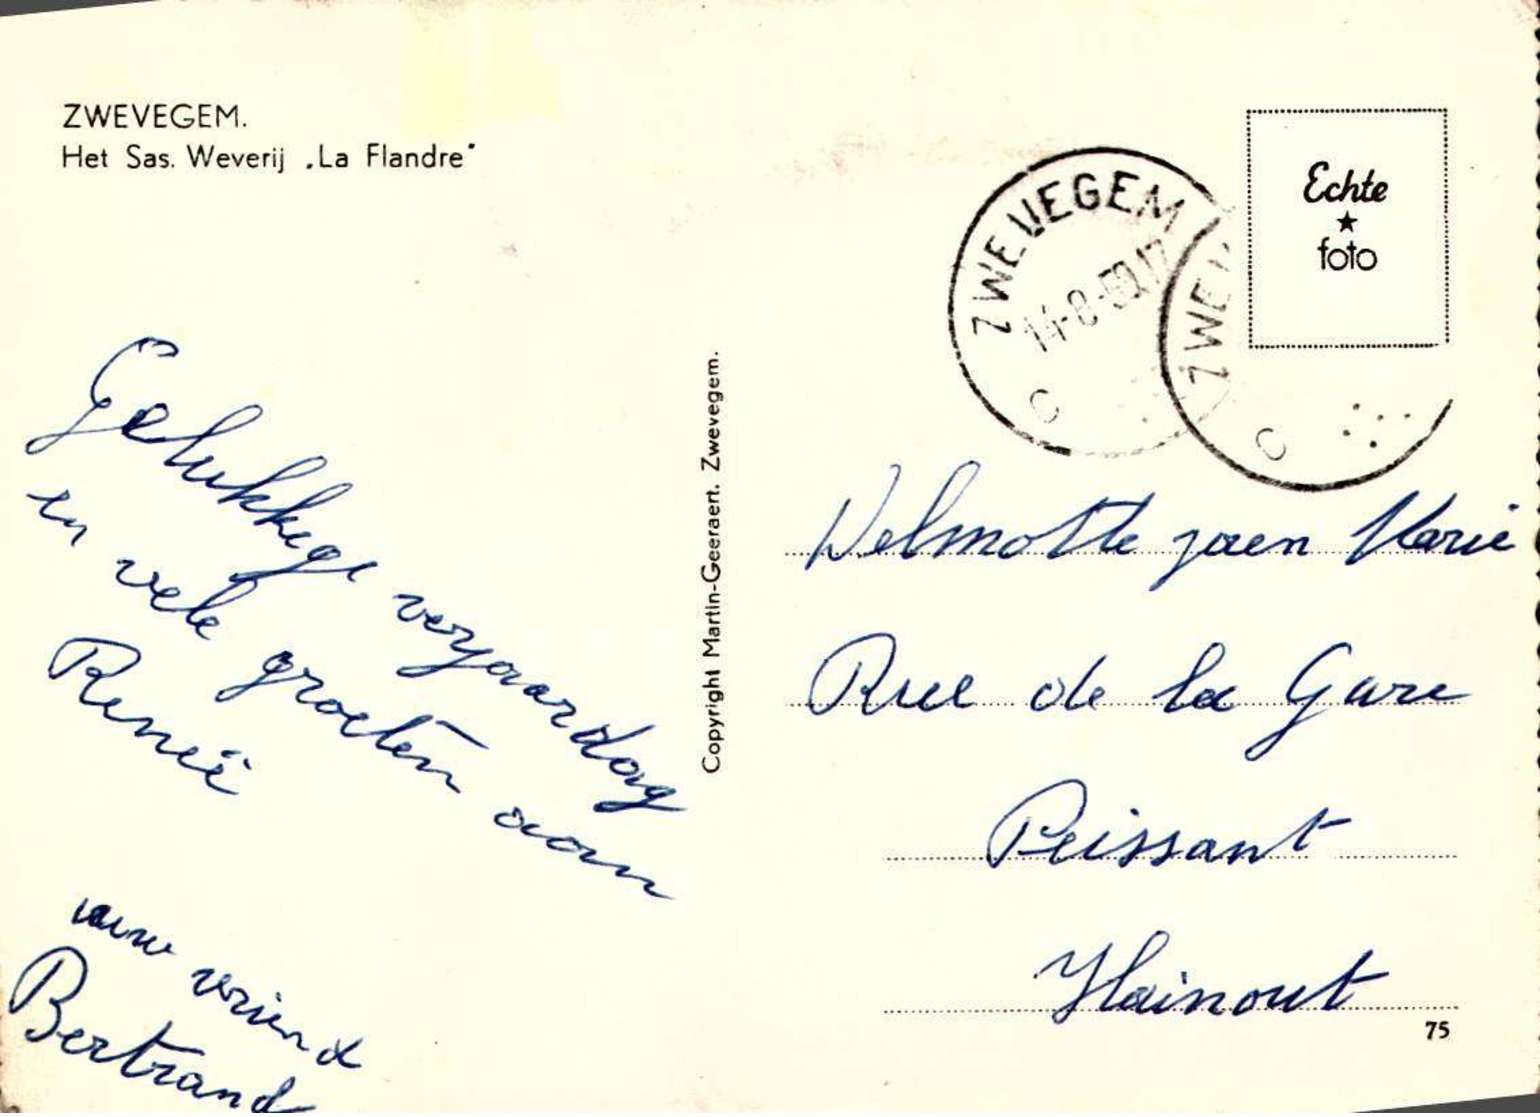 ZWEVEGEM.
Het Sas. Weverij „La Flandre"
Gelukkige verjaardag
en vele groeten aan
Reneé
uw vriend
Bertrand
Copyright Martin-Geeraert. Zwevegem.
ZWEVEGEM
C
ZWEV
C
Echte
★
foto
Delmotte jaen Marie
Rue de la Gare
Peissant
Hainout
75